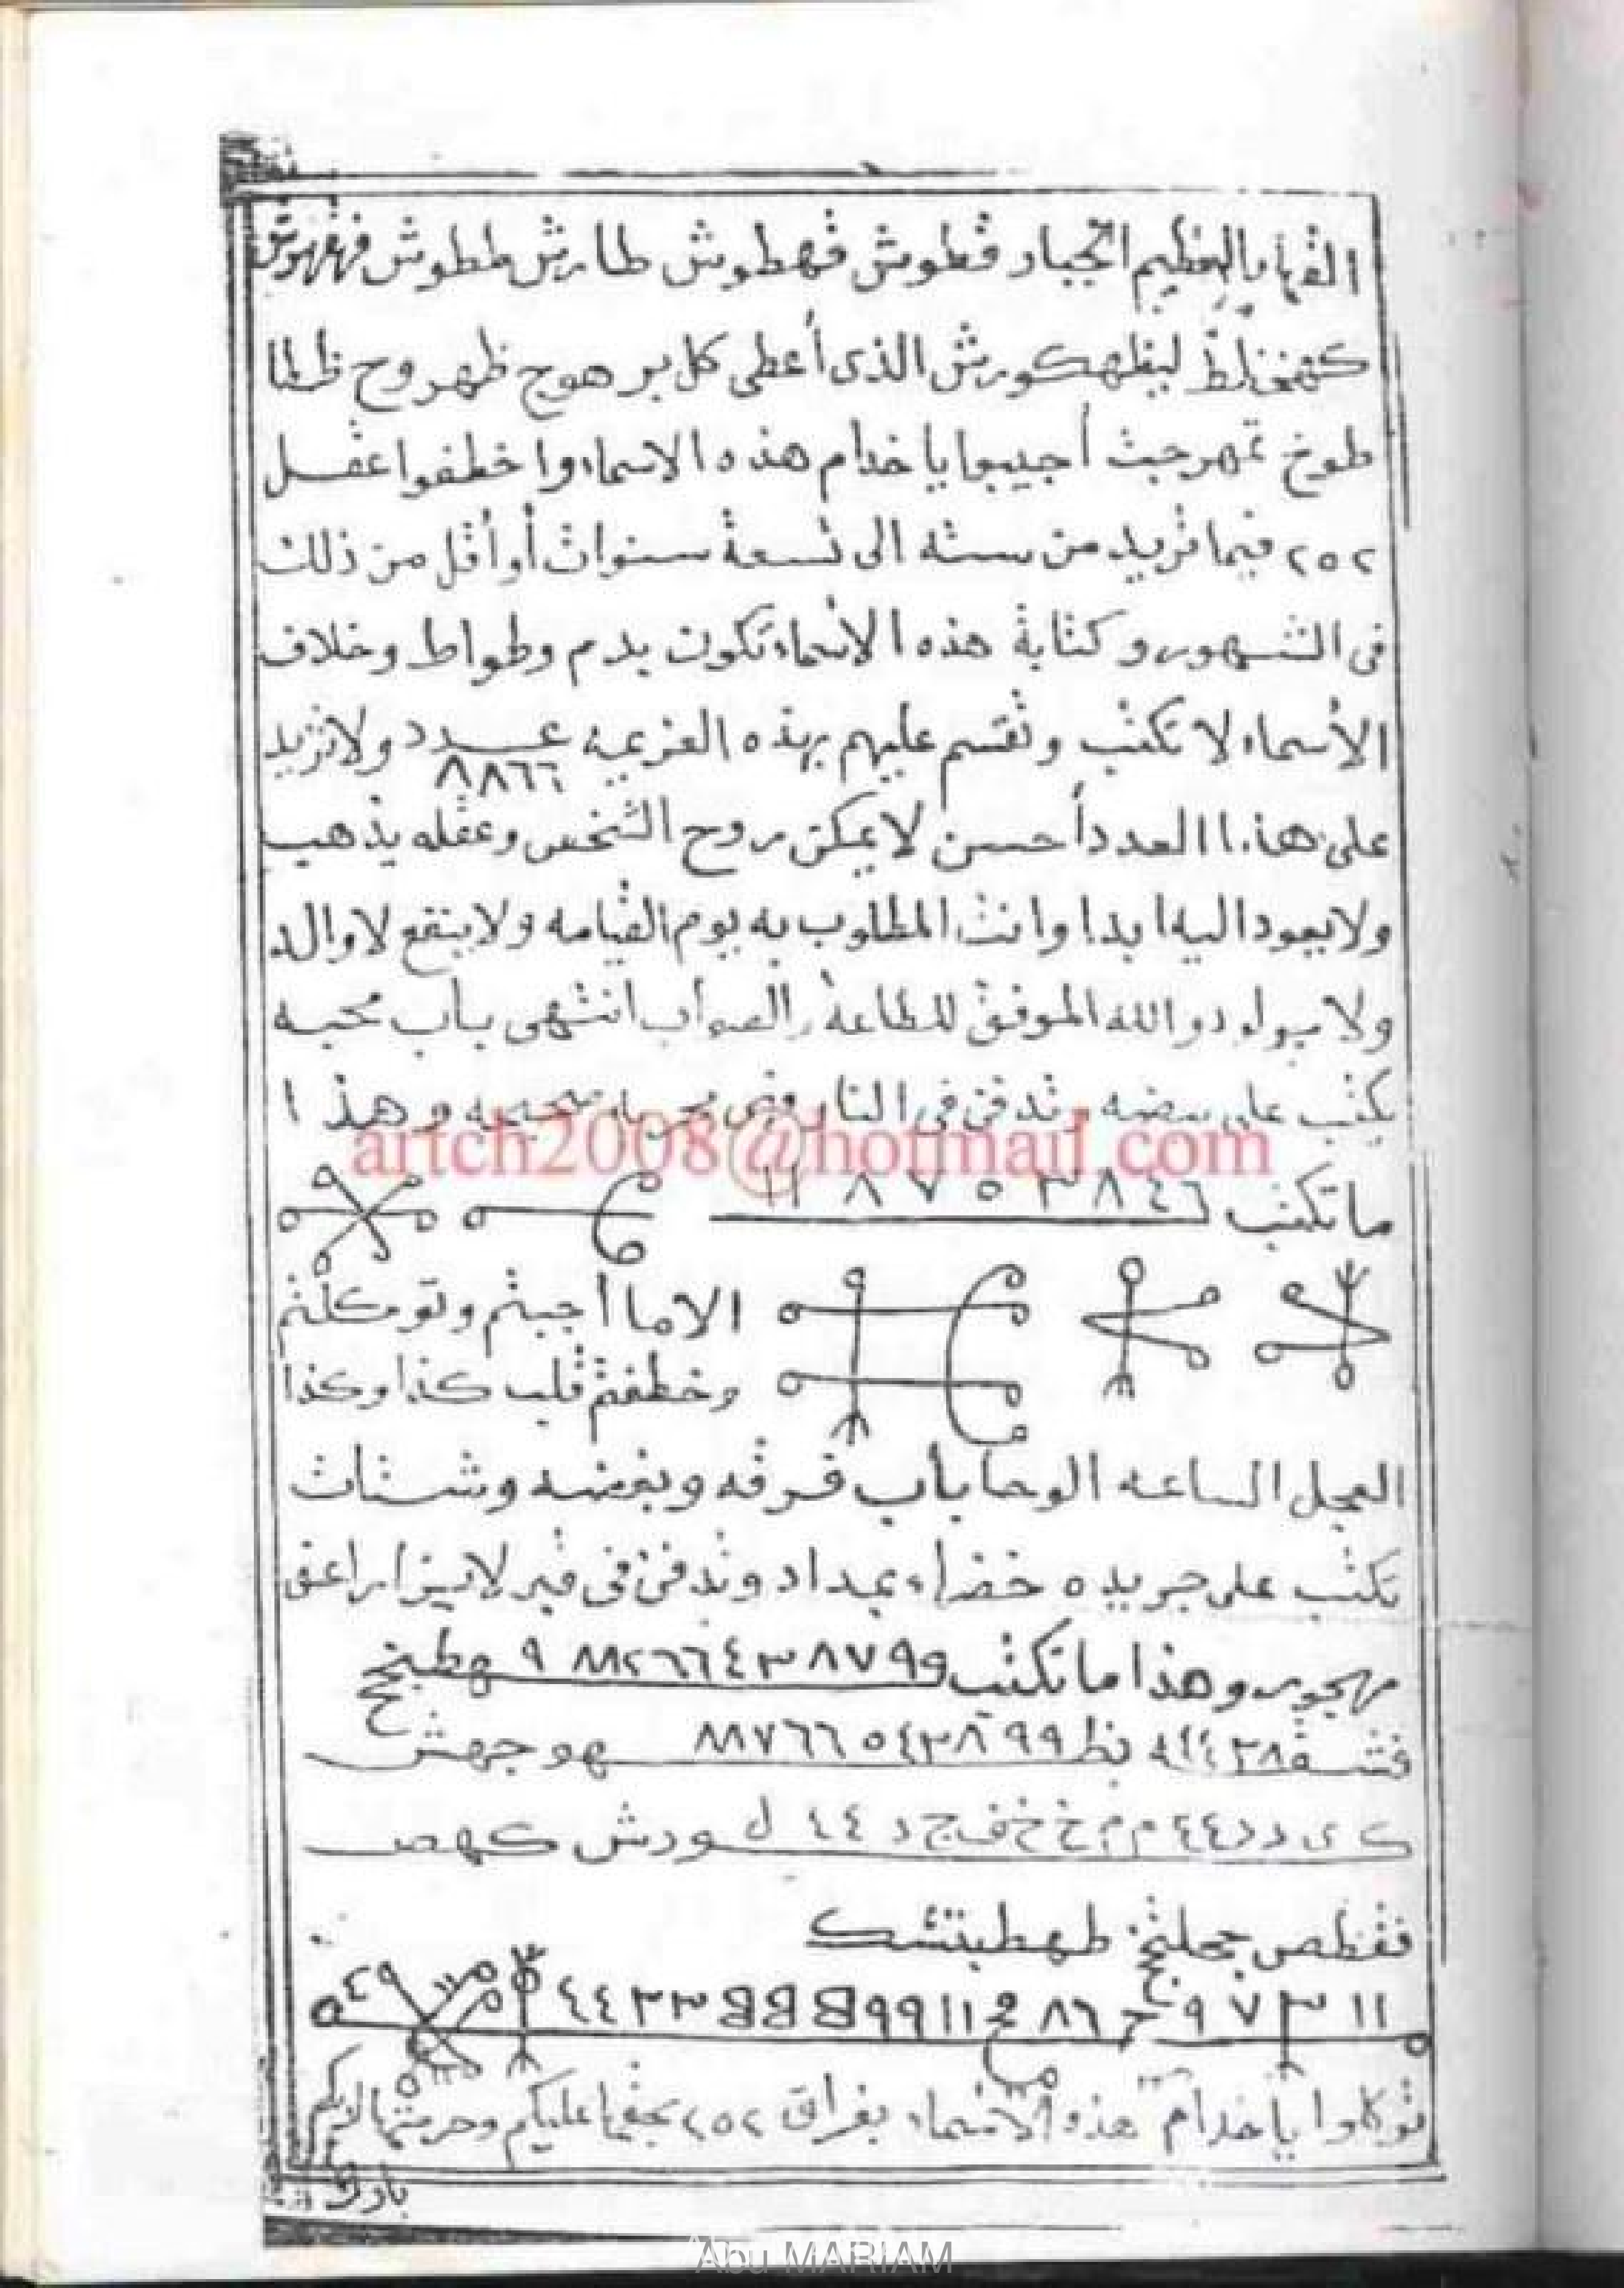 القهار العظيم الجبار قطوش فهطوش طارش ططوش
الذى أعطى كل برهوج ظهروح
طوخ تمهرجث أجيبوا يا خدام هذه الاسماء واخطفوا عقل
٢٥٢ فيما تريد من سته الى تسعة سنوات أو أقل من ذلك
فى الشهور وكتابة هذه الأسماء تكون بدم وطواط وخلاف
الأسماء لا تكتب وتقسم عليهم بهذه العزيمه عدد ولا تزيد
٨٨٦٦
على هذا العدد أحسن لا يمكن روح الشخص وعقله يذهب
ولا يعود اليه ابدا وانت المطلوب به يوم القيامه ولا ينفع لا والد
ولا مولود والله الموفق للطاعة والصواب انتهى باب محبه
يكتب على بيضه وتدفن فى النار وهى صحيحه وهذا
artch2008@hotmail.com
ما تكتب ٦٤٨٣٥٧٨١١
الا ما أجبتم وتوكلتم
وخطفتم قلب كذا وكذا
العجل الساعه الوحا باب فرقه وبغضه وشتات
تكتب على جريده خضراء بمداد وتدفن فى قبر لا يزار اعنى
مهجور وهذا ما تكتب و٩٧٨٣٤٦٦٢٨٨ ٩ هطبخ
بظ ٩٩٨٣٤٥٦٦٧٨٨ هوجهش
ك ى د د ٤٤ م م خ خ ف ج د ٤٤ ل ودش كهص
ققظص
١١ ٣ ٧ ٩ ٨٦ ١١٩٩ ٣٣٤٤
توكلوا يا خدام هذه الأسماء بفراق ٢٥٢ بحقها عليكم وحرمتها لديكم
بارك
Abu MARIAM